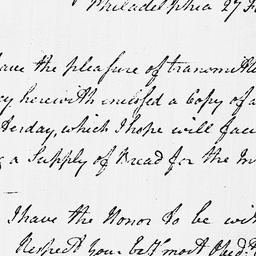 Philadelphia 27
have the pleasure of transmitt
herewith inclosed a Copy of a
terday, which I hope will fac
a Supply of Bread for the
I have the Honor to be wit
Respect Your best most Obed.t